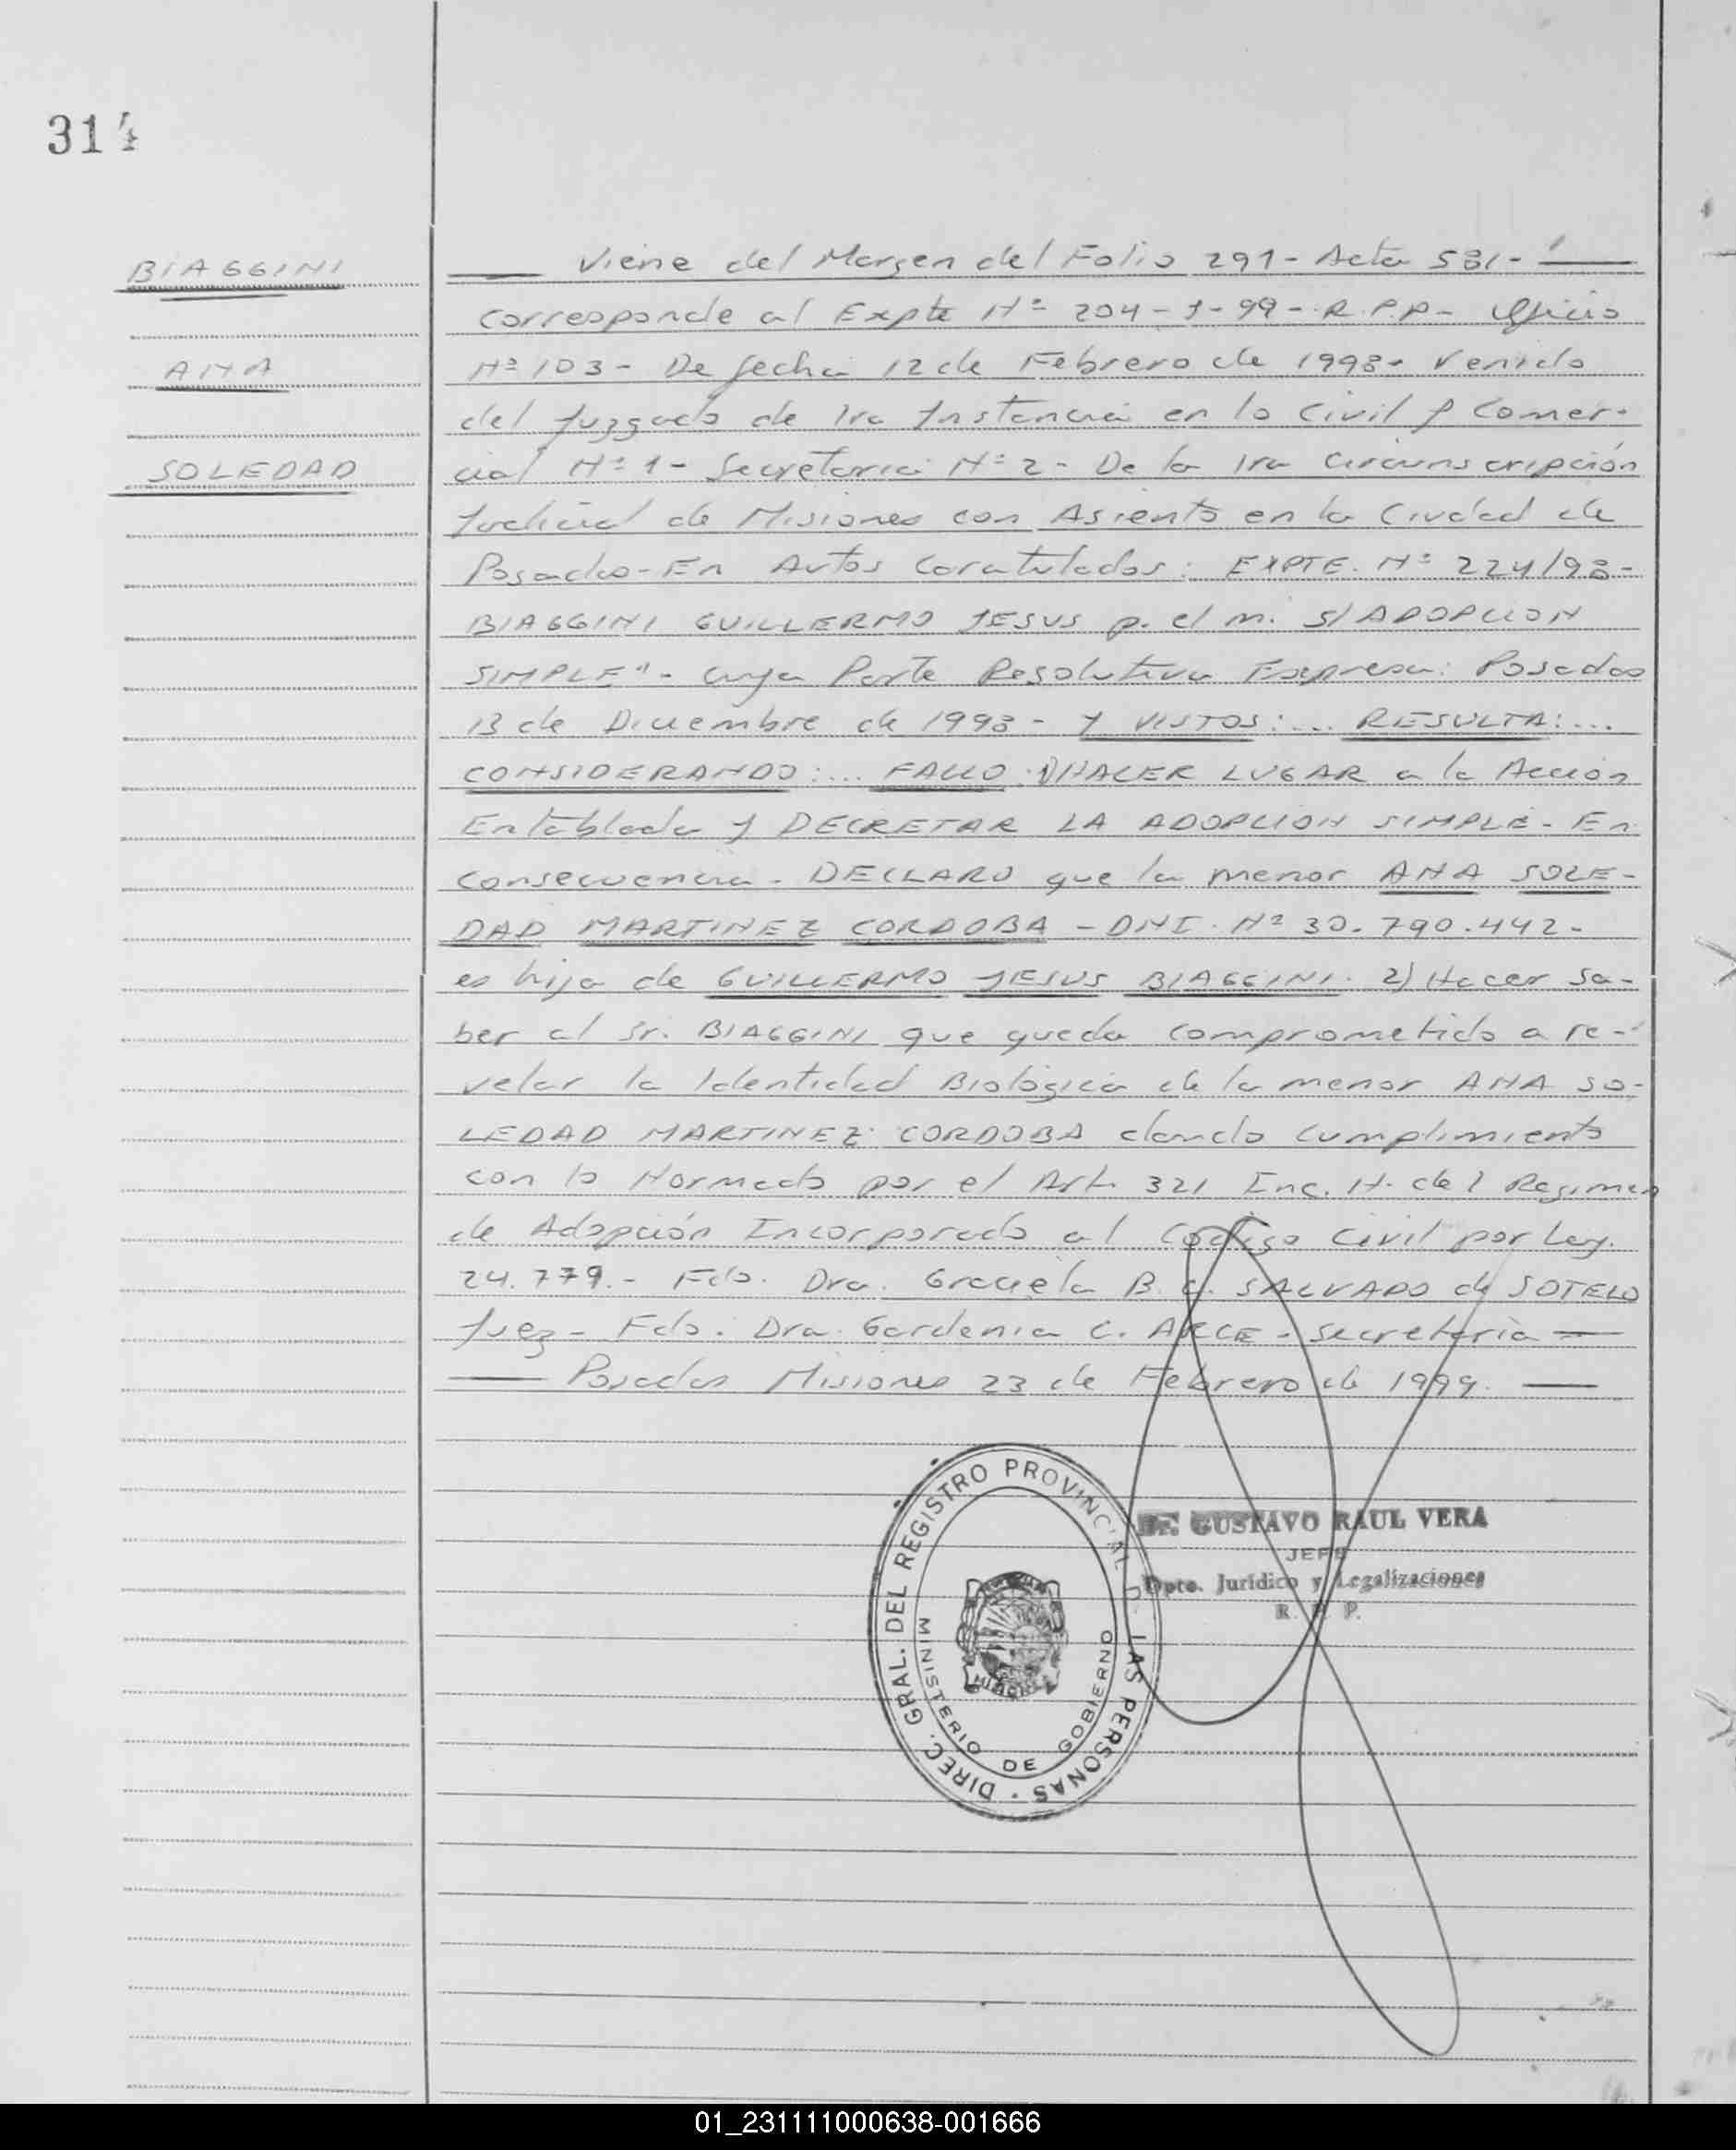 314
BIAGGINI
ANA
SOLEDAD
Viene del Margen del Folio 291- Acta 581-
corresponde al Expte Nº 204-J-99-R.P.P- Oficio
Nº 103- De fecha 12 de Febrero de 1998- Venido
del Juzgado de 1ra Instancia en lo Civil y Comer-
cial Nº 1- Secretaria Nº 2- De la 1ra Circunscripción
Judicial de Misiones con Asiento en la Ciudad de
Posadas-En Autos Caratulados: EXPTE. Nº 224/98-
BIAGGINI GUILLERMO JESUS p. el m. S/ADOPCION
SIMPLE"- cuya Parte Resolutiva Expresa: Posadas
13 de Diciembre de 1998- Y VISTOS:... RESULTA:...
CONSIDERANDO:... FALLO 1)HACER LUGAR a la Acción
Entablada y DECRETAR LA ADOPCION SIMPLE- En
Consecuencia- DECLARO que la menor ANA SOLE-
DAD MARTINEZ CORDOBA -DNI. Nº 30.790.442-
es hija de GUILLERMO JESUS BIAGGINI. 2) Hacer sa-
ber al Sr. BIAGGINI que queda comprometido a re-
velar la Identidad Biológica de la menor ANA SO-
LEDAD MARTINEZ CORDOBA dando cumplimiento
con lo Normado por el Art. 321 Inc. H. del Regimen
de Adopción Incorporado al Codigo Civil por Ley.
24.779.- Fdo. Dra. Graciela B. d. SALVADO de SOTELO
Juez- Fdo. Dra. Gardenia C. ARCE- Secretaria
Posadas Misiones 23 de Febrero de 1999.
DIREC. GRAL. DEL REGISTRO PROVINCIAL DE LAS PERSONAS
MINISTERIO DE GOBIERNO
MISIONES
Dr. GUSTAVO RAUL VERA
JEFE
Dpto. Jurídico y Legalizaciones
R. P. P.
01_231111000638-001666